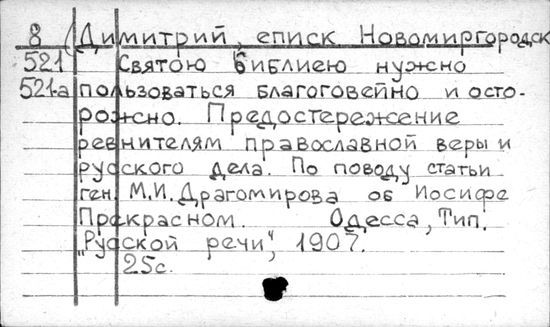 8 (Димитрий, еписк Новомиргородск
521 Святою библиею нужно
521-а пользоваться благоговейно и осто-
рожно. Предостережение
ревнителям православной веры и
русского дела. По поводу статьи
ген. М.И. Драгомирова об Иосифе
Прекрасном. Одесса, Тип.
"Русской речи", 1907.
25с.